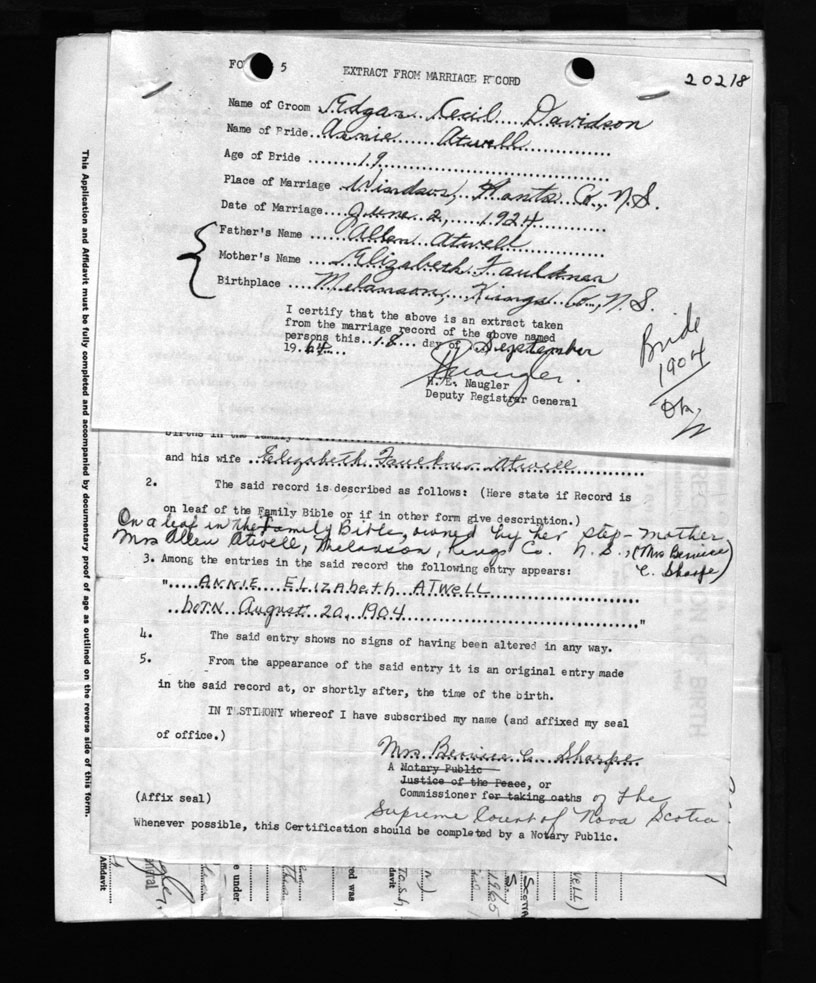 FO 5
EXTRACT FROM MARRIAGE R CORD
20218
Name of Groom Edgar Cecil Davidson
Name of Bride Annie Atwell
Age of Bride 19
Place of Marriage Windsor, Hants Co., N.S.
Date of Marriage June 2, 1924
Father's Name Allen Atwell
Mother's Name Elizabeth Fauldner
Birthplace Melanson, Kings Co., N.S.
I certify that the above is an extract taken
from the marriage record of the above named
persons this 18 day of September
1964
H. E. Naugler
Deputy Registrar General
Bride
1904
Ok.
births in the family of
and his wife Elizabeth Faulkner Atwell
2. The said record is described as follows: (Here state if Record is
on leaf of the Family Bible or if in other form give description.)
On a leaf in the Family Bible, owned by her step-mother
Mrs Allen Atwell, Melanson, Kings Co. N.S., (Mrs Bernice
C. Sharpe)
3. Among the entries in the said record the following entry appears:
"ANNIE ELIZabeth ATWeLL
borN August 20, 1904"
4. The said entry shows no signs of having been altered in any way.
5. From the appearance of the said entry it is an original entry made
in the said record at, or shortly after, the time of the birth.
IN T STIMONY whereof I have subscribed my name (and affixed my seal
of office.)
Mrs Bernice C. Sharpe
A Notary Public
Justice of the Peace, or
Commissioner for taking oaths of the
Supreme Court of Nova Scotia
(Affix seal)
Whenever possible, this Certification should be completed by a Notary Public.
This Application and Affidavit must be fully completed and accompanied by documentary proof of age as outlined on the reverse side of this form.
Affidavit
e under
ed was
davit
1965
Scotia